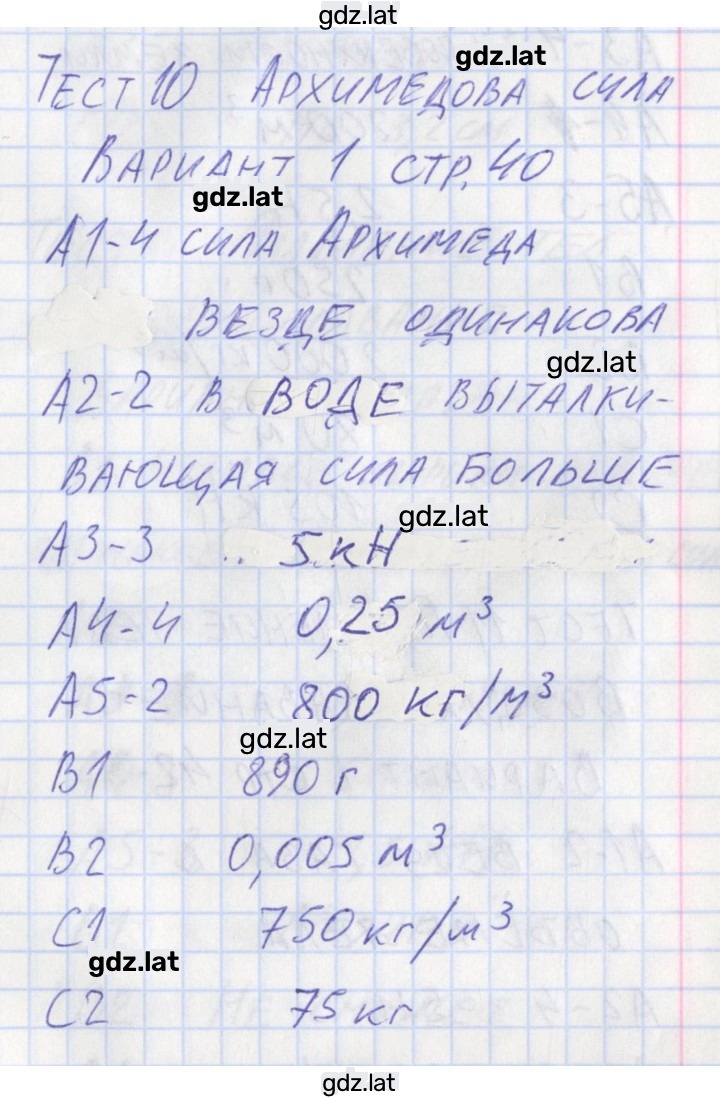 gdz.lat
gdz.lat
ТЕСТ 10 АРХИМЕДОВА СИЛА
ВАРИАНТ 1 СТР. 40
gdz.lat
А1-4 СИЛА АРХИМЕДА
ВЕЗДЕ ОДИНАКОВА
gdz.lat
А2-2 В ВОДЕ ВЫТАЛКИ-
ВАЮЩАЯ СИЛА БОЛЬШЕ
gdz.lat
А3-3 5 кН
А4-4 0,25 м³
А5-2 800 кг/м³
gdz.lat
В1 890 г
В2 0,005 м³
С1 750 кг/м³
gdz.lat
С2 75 кг
gdz.lat